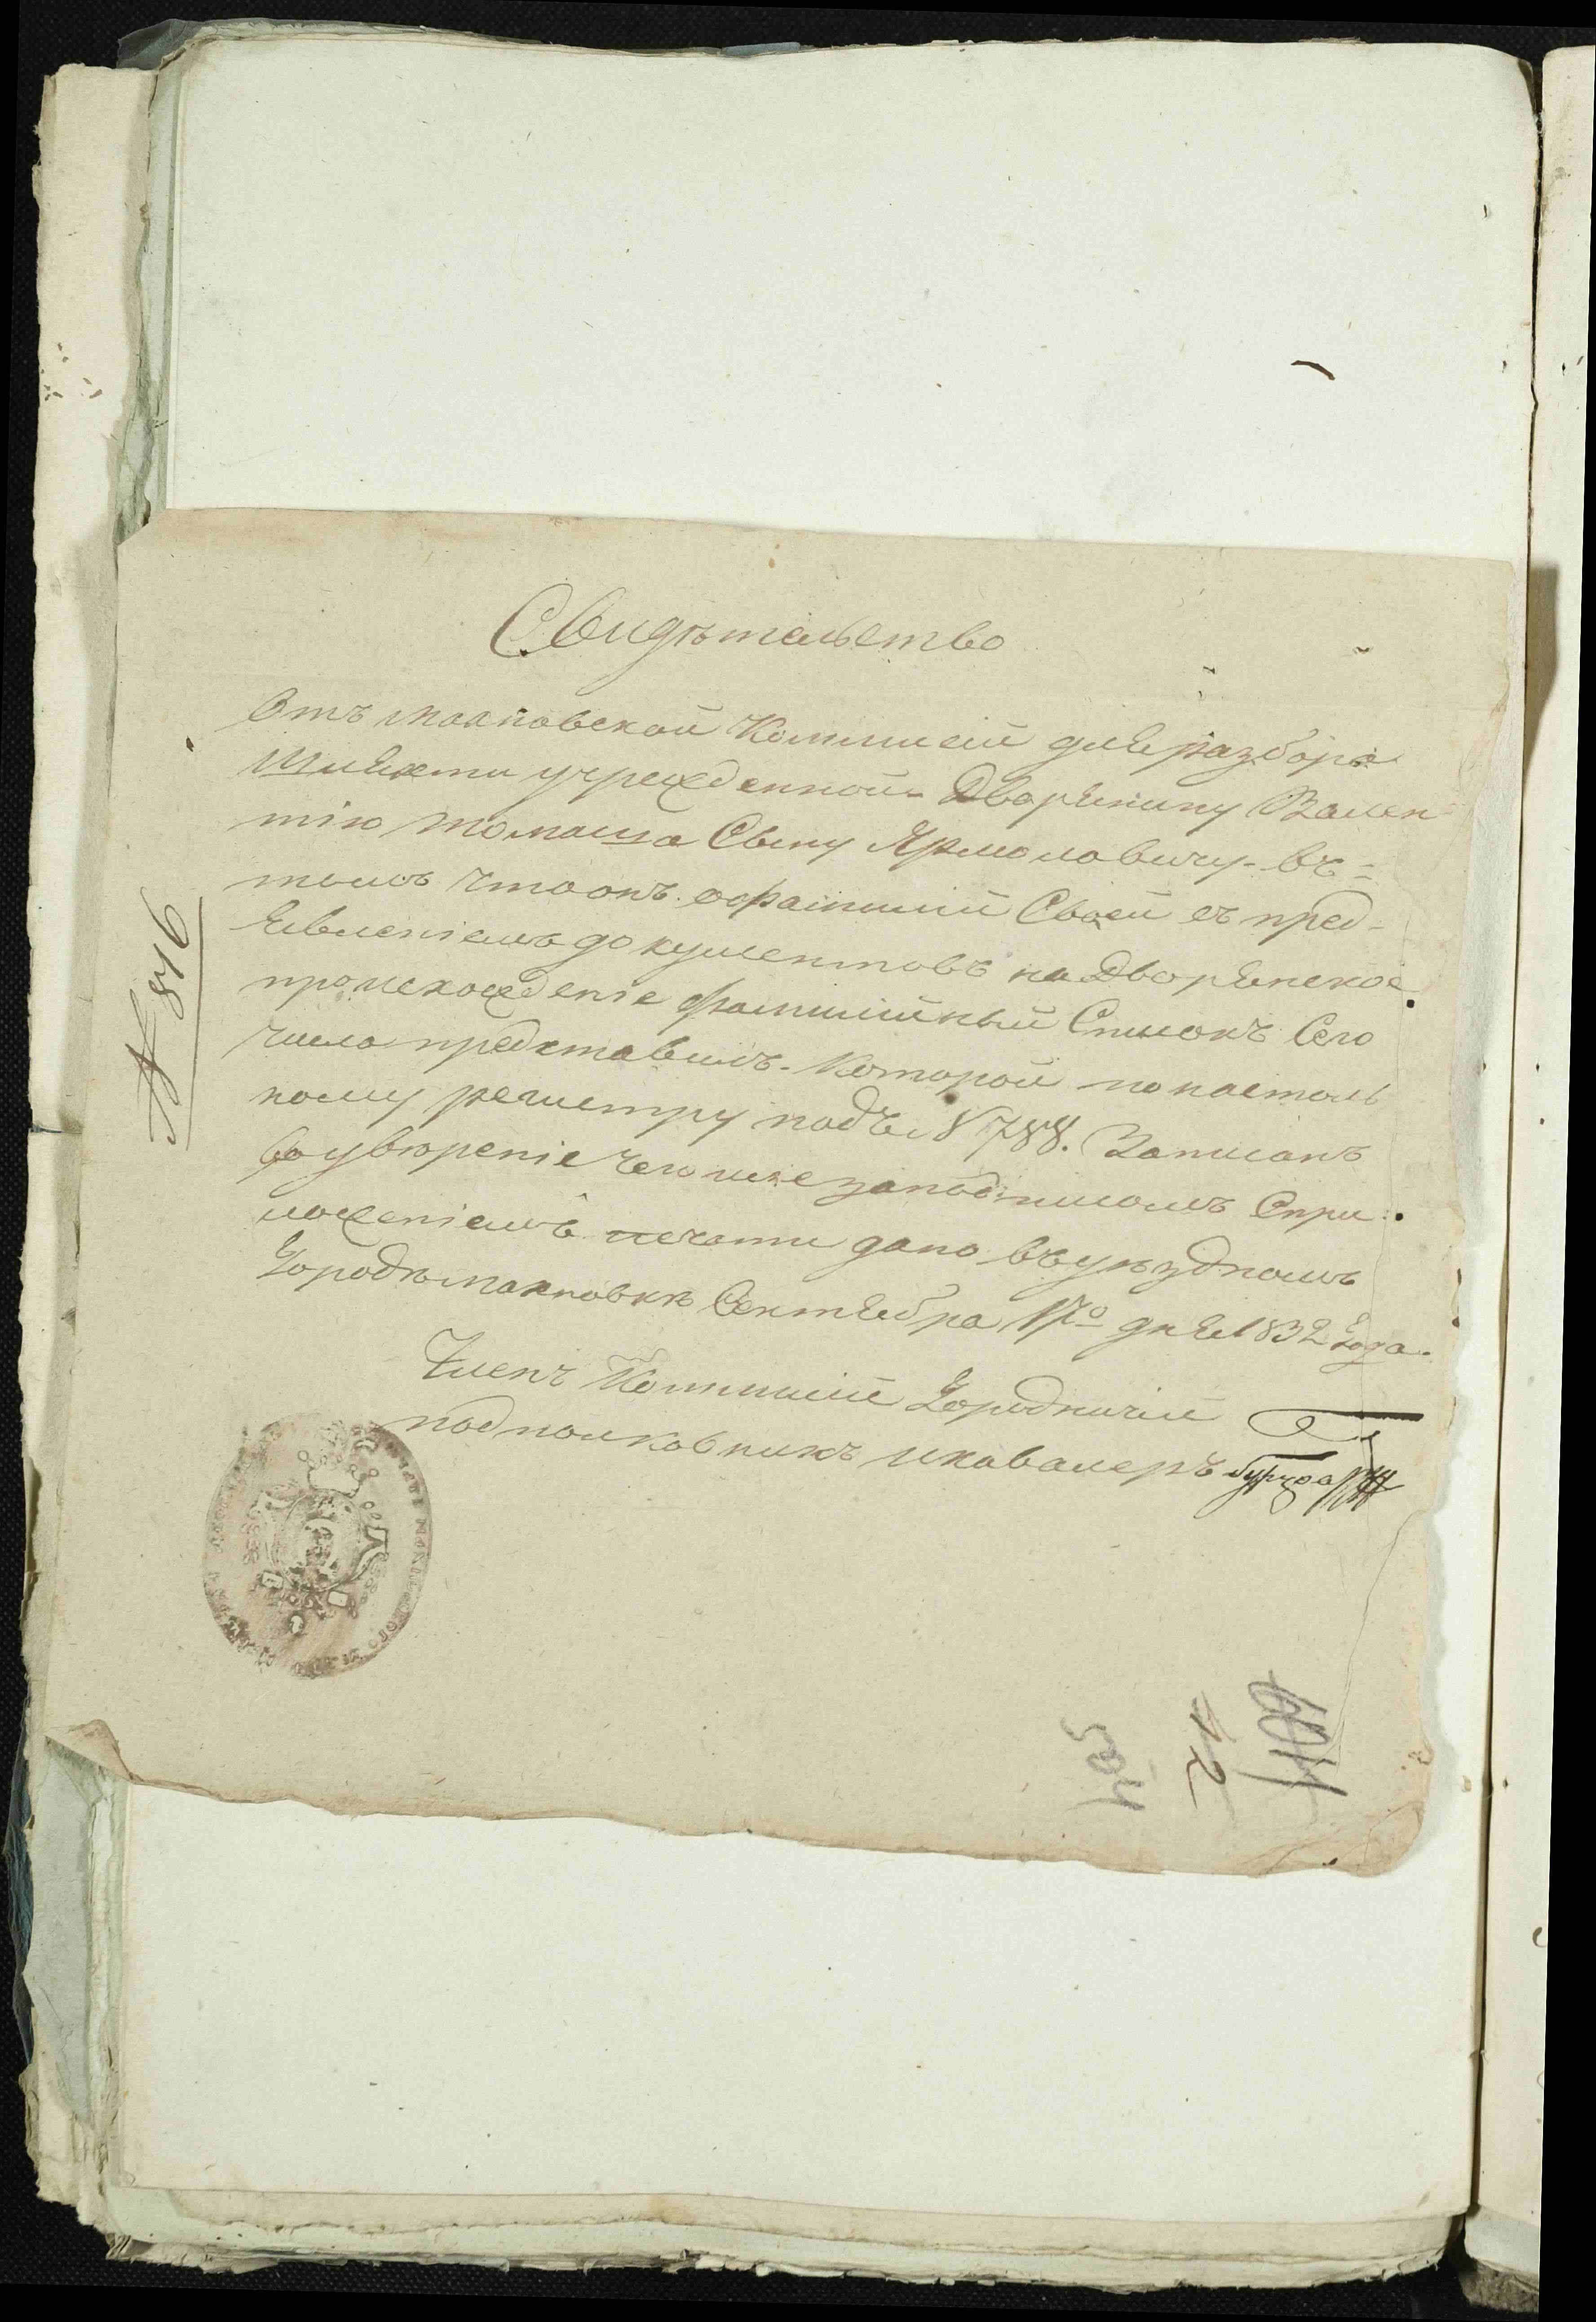 Свидѣтельство
Отъ махновской Коммисіи для разбора
Шляхти учрежденной - Дворянину Вален-
тію томаша Сыну Ярмоловичу - въ-
томъ что онъ о фамиліи Своей съ пред-
явленіемъ документовъ на Дворянское
происхожденіе фамилійный Списокъ Сего
числа представилъ. Которой по настоль
ному регистру подъ № 788. Записанъ
во увѣреніе чего и сіе за подписомъ Спри-
ложеніемъ печати дано въ уѣздномъ
Городѣ махновкѣ Сентября 17го дня 1832 года.
Членъ Коммисіи Городничій
подполковникъ и кавалеръ
№ 816
504
12